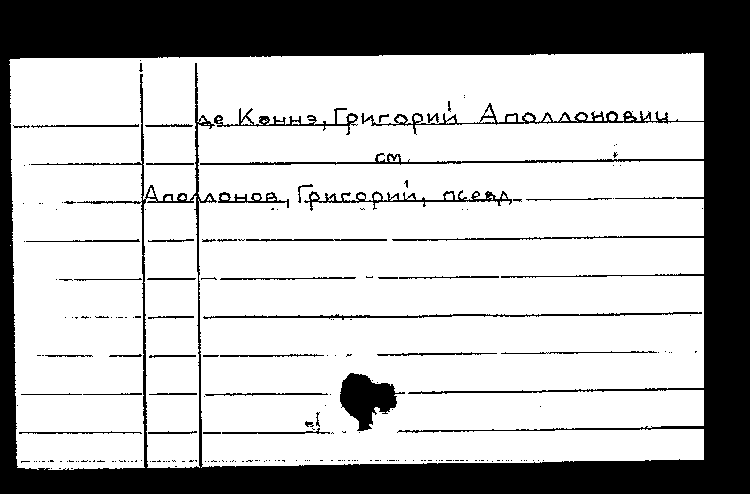 де Коннэ, Григорий Аполлонович
см.
Аполлонов, Григорий, псевд.